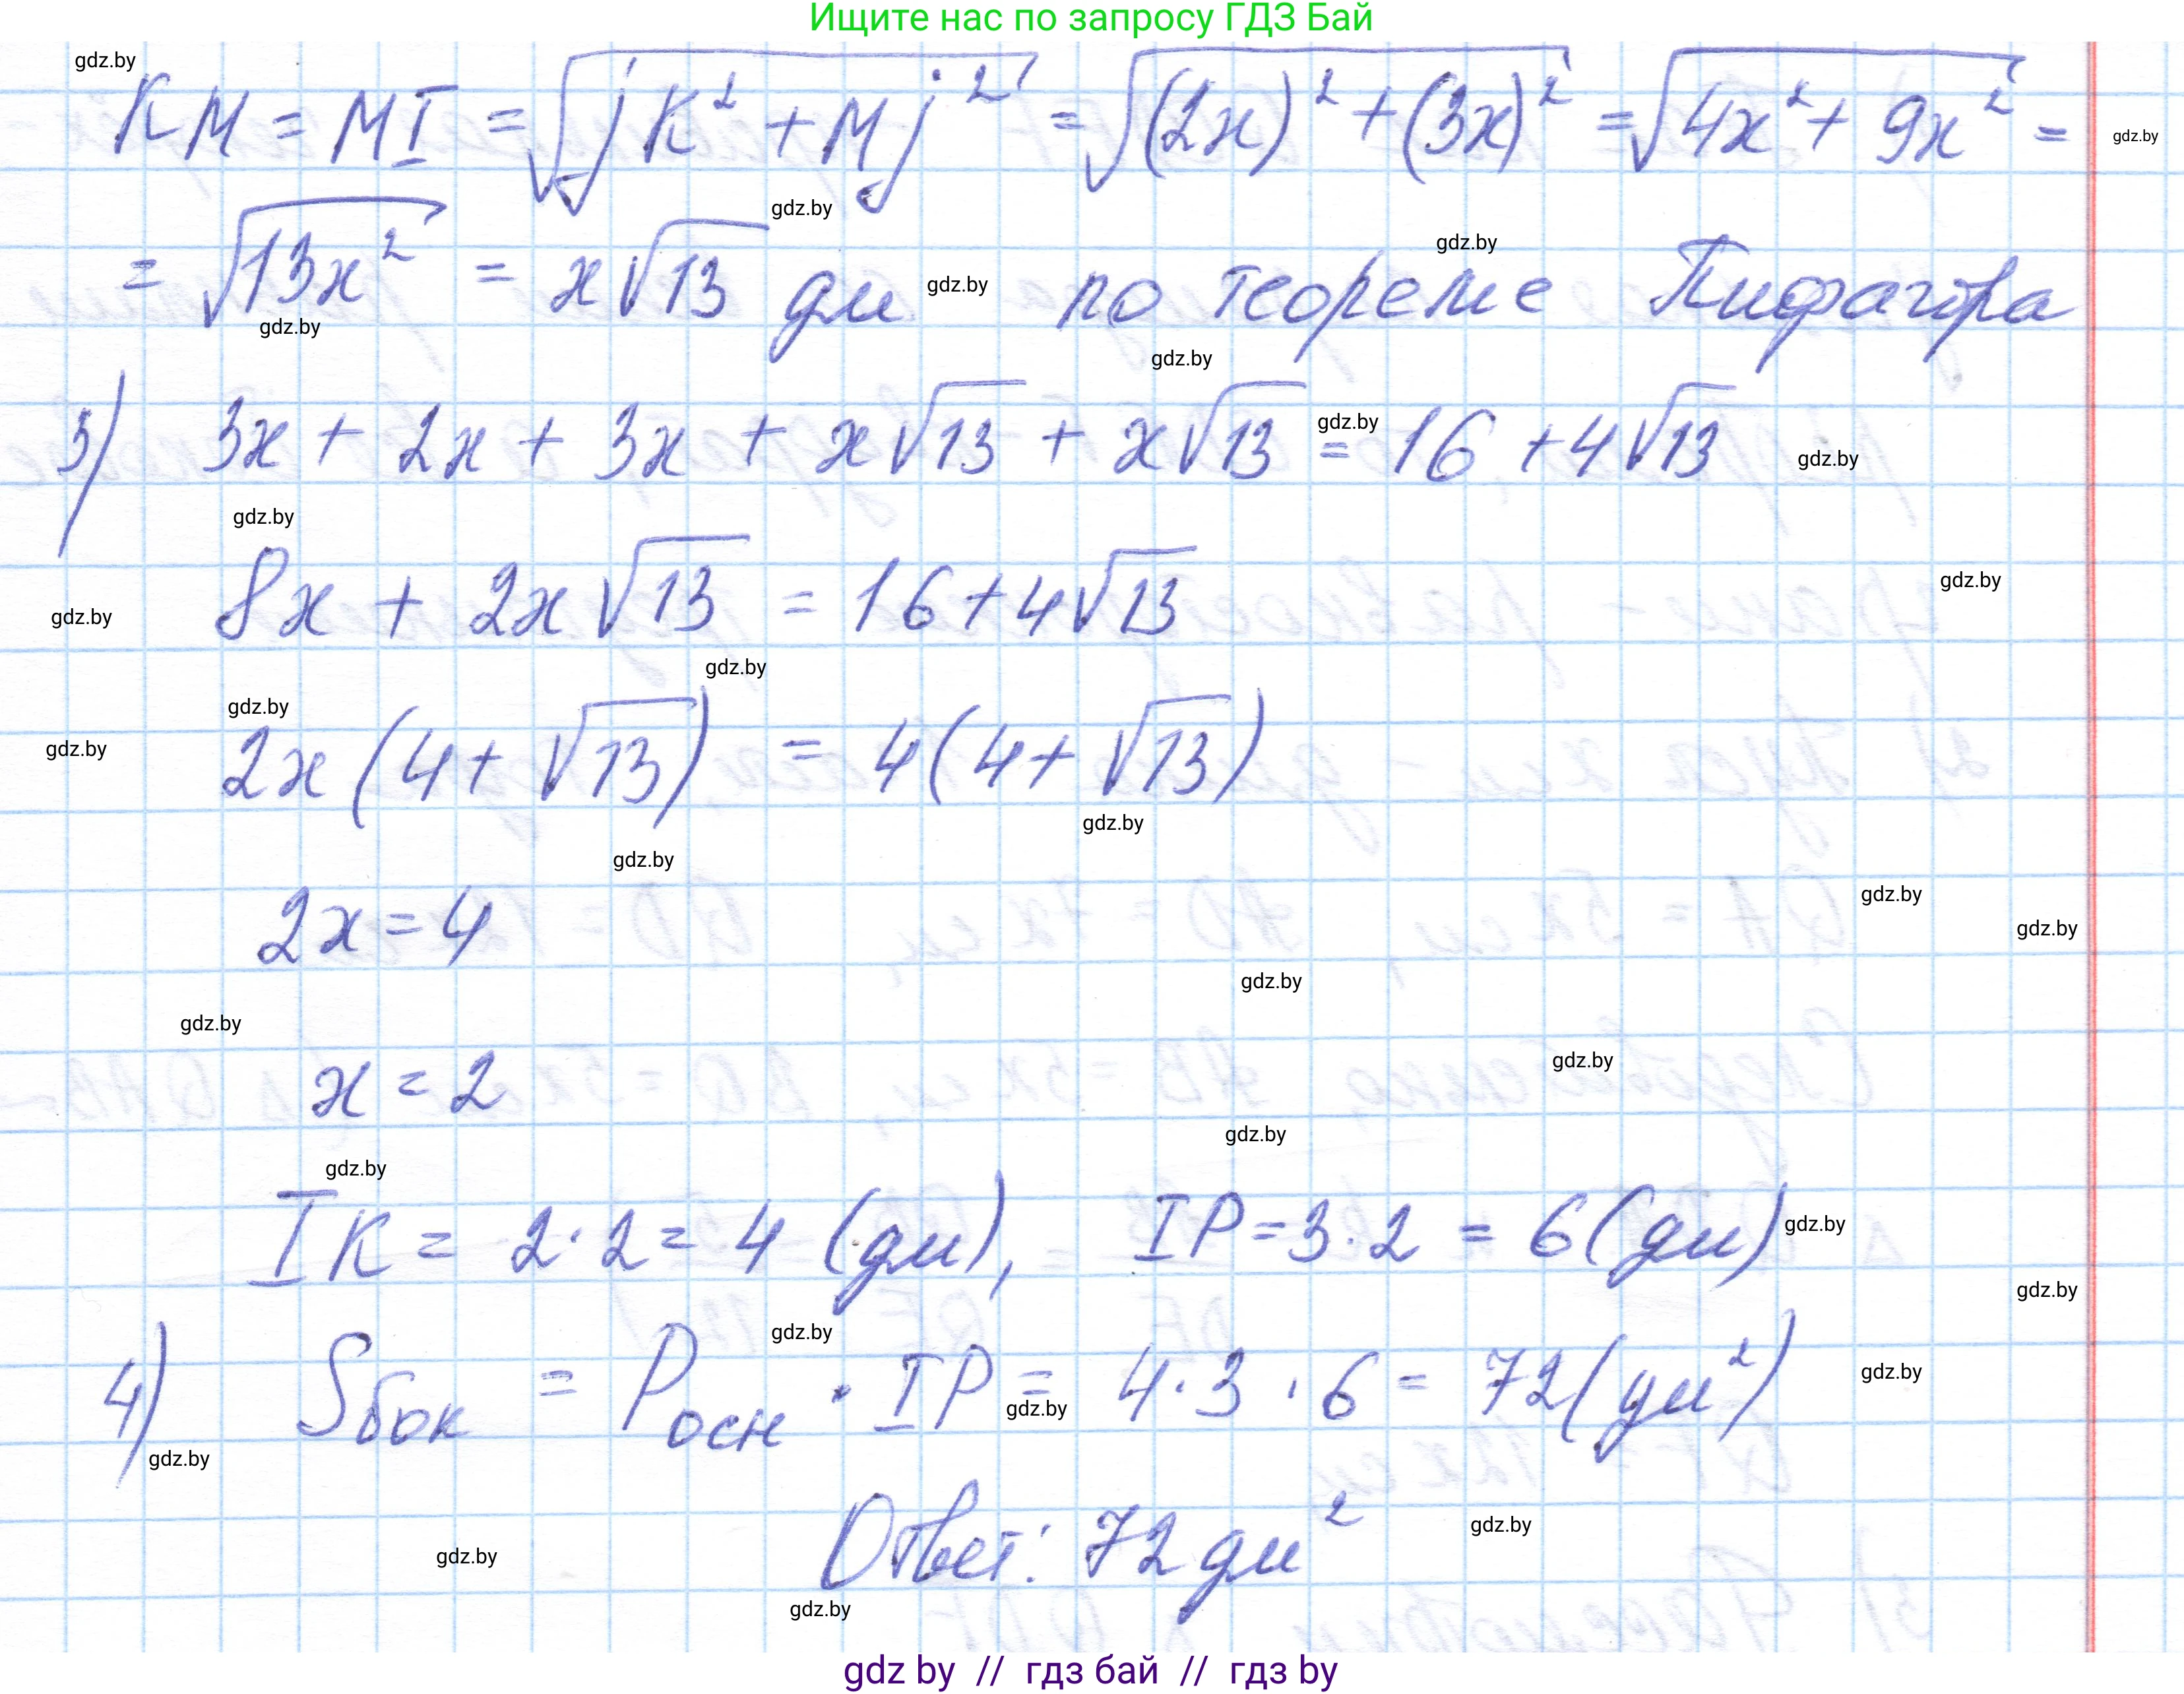 Ищите нас по запросу ГДЗ Бай
gdz.by
KM = MI = √(jK² + Mj²) = √((2x)² + (3x)²) = √(4x² + 9x²) =
gdz.by
gdz.by
= √(13x²) = x√13 дм по теореме Пифагора
gdz.by
gdz.by
gdz.by
gdz.by
3) 3x + 2x + 3x + x√13 + x√13 = 16 + 4√13
gdz.by
gdz.by
gdz.by
8x + 2x√13 = 16 + 4√13
gdz.by
gdz.by
gdz.by
gdz.by
2x(4 + √13) = 4(4 + √13)
gdz.by
gdz.by
gdz.by
2x = 4
gdz.by
gdz.by
gdz.by
gdz.by
x = 2
gdz.by
gdz.by
gdz.by
IK = 2·2 = 4 (дм), IP = 3·2 = 6(дм)
gdz.by
gdz.by
gdz.by
4) Sбок = Pосн · IP = 4·3·6 = 72(дм²)
gdz.by
gdz.by
gdz.by
Ответ: 72 дм²
gdz.by
gdz.by
gdz.by
gdz by // гдз бай // гдз by